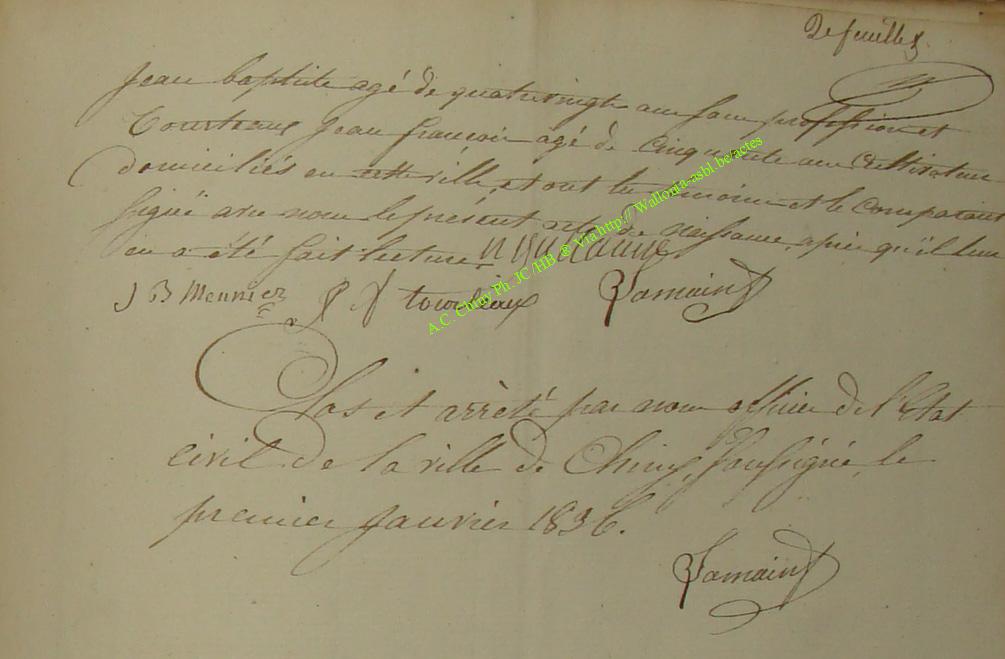 Defeuille
Jean baptiste agé de quatrevingts ans sans profession et
Courteaux Jean françois agé de cinquante ans Cultivateur
domiciliés en cette ville, et ont les témoins et le comparant
signé avec nous le présent acte de Naissance, après qu'il leur
en a été fait lecture.
J B Meunier J f Courteaux Jamain
A.C. Chiny Ph. JC /HB ® Via http:// Wallonia-asbl.be/actes
Clos et arrêté par nous officier de l'Etat
civil de la ville de Chiny, Soussigné, le
premier Janvier 1836.
Jamain